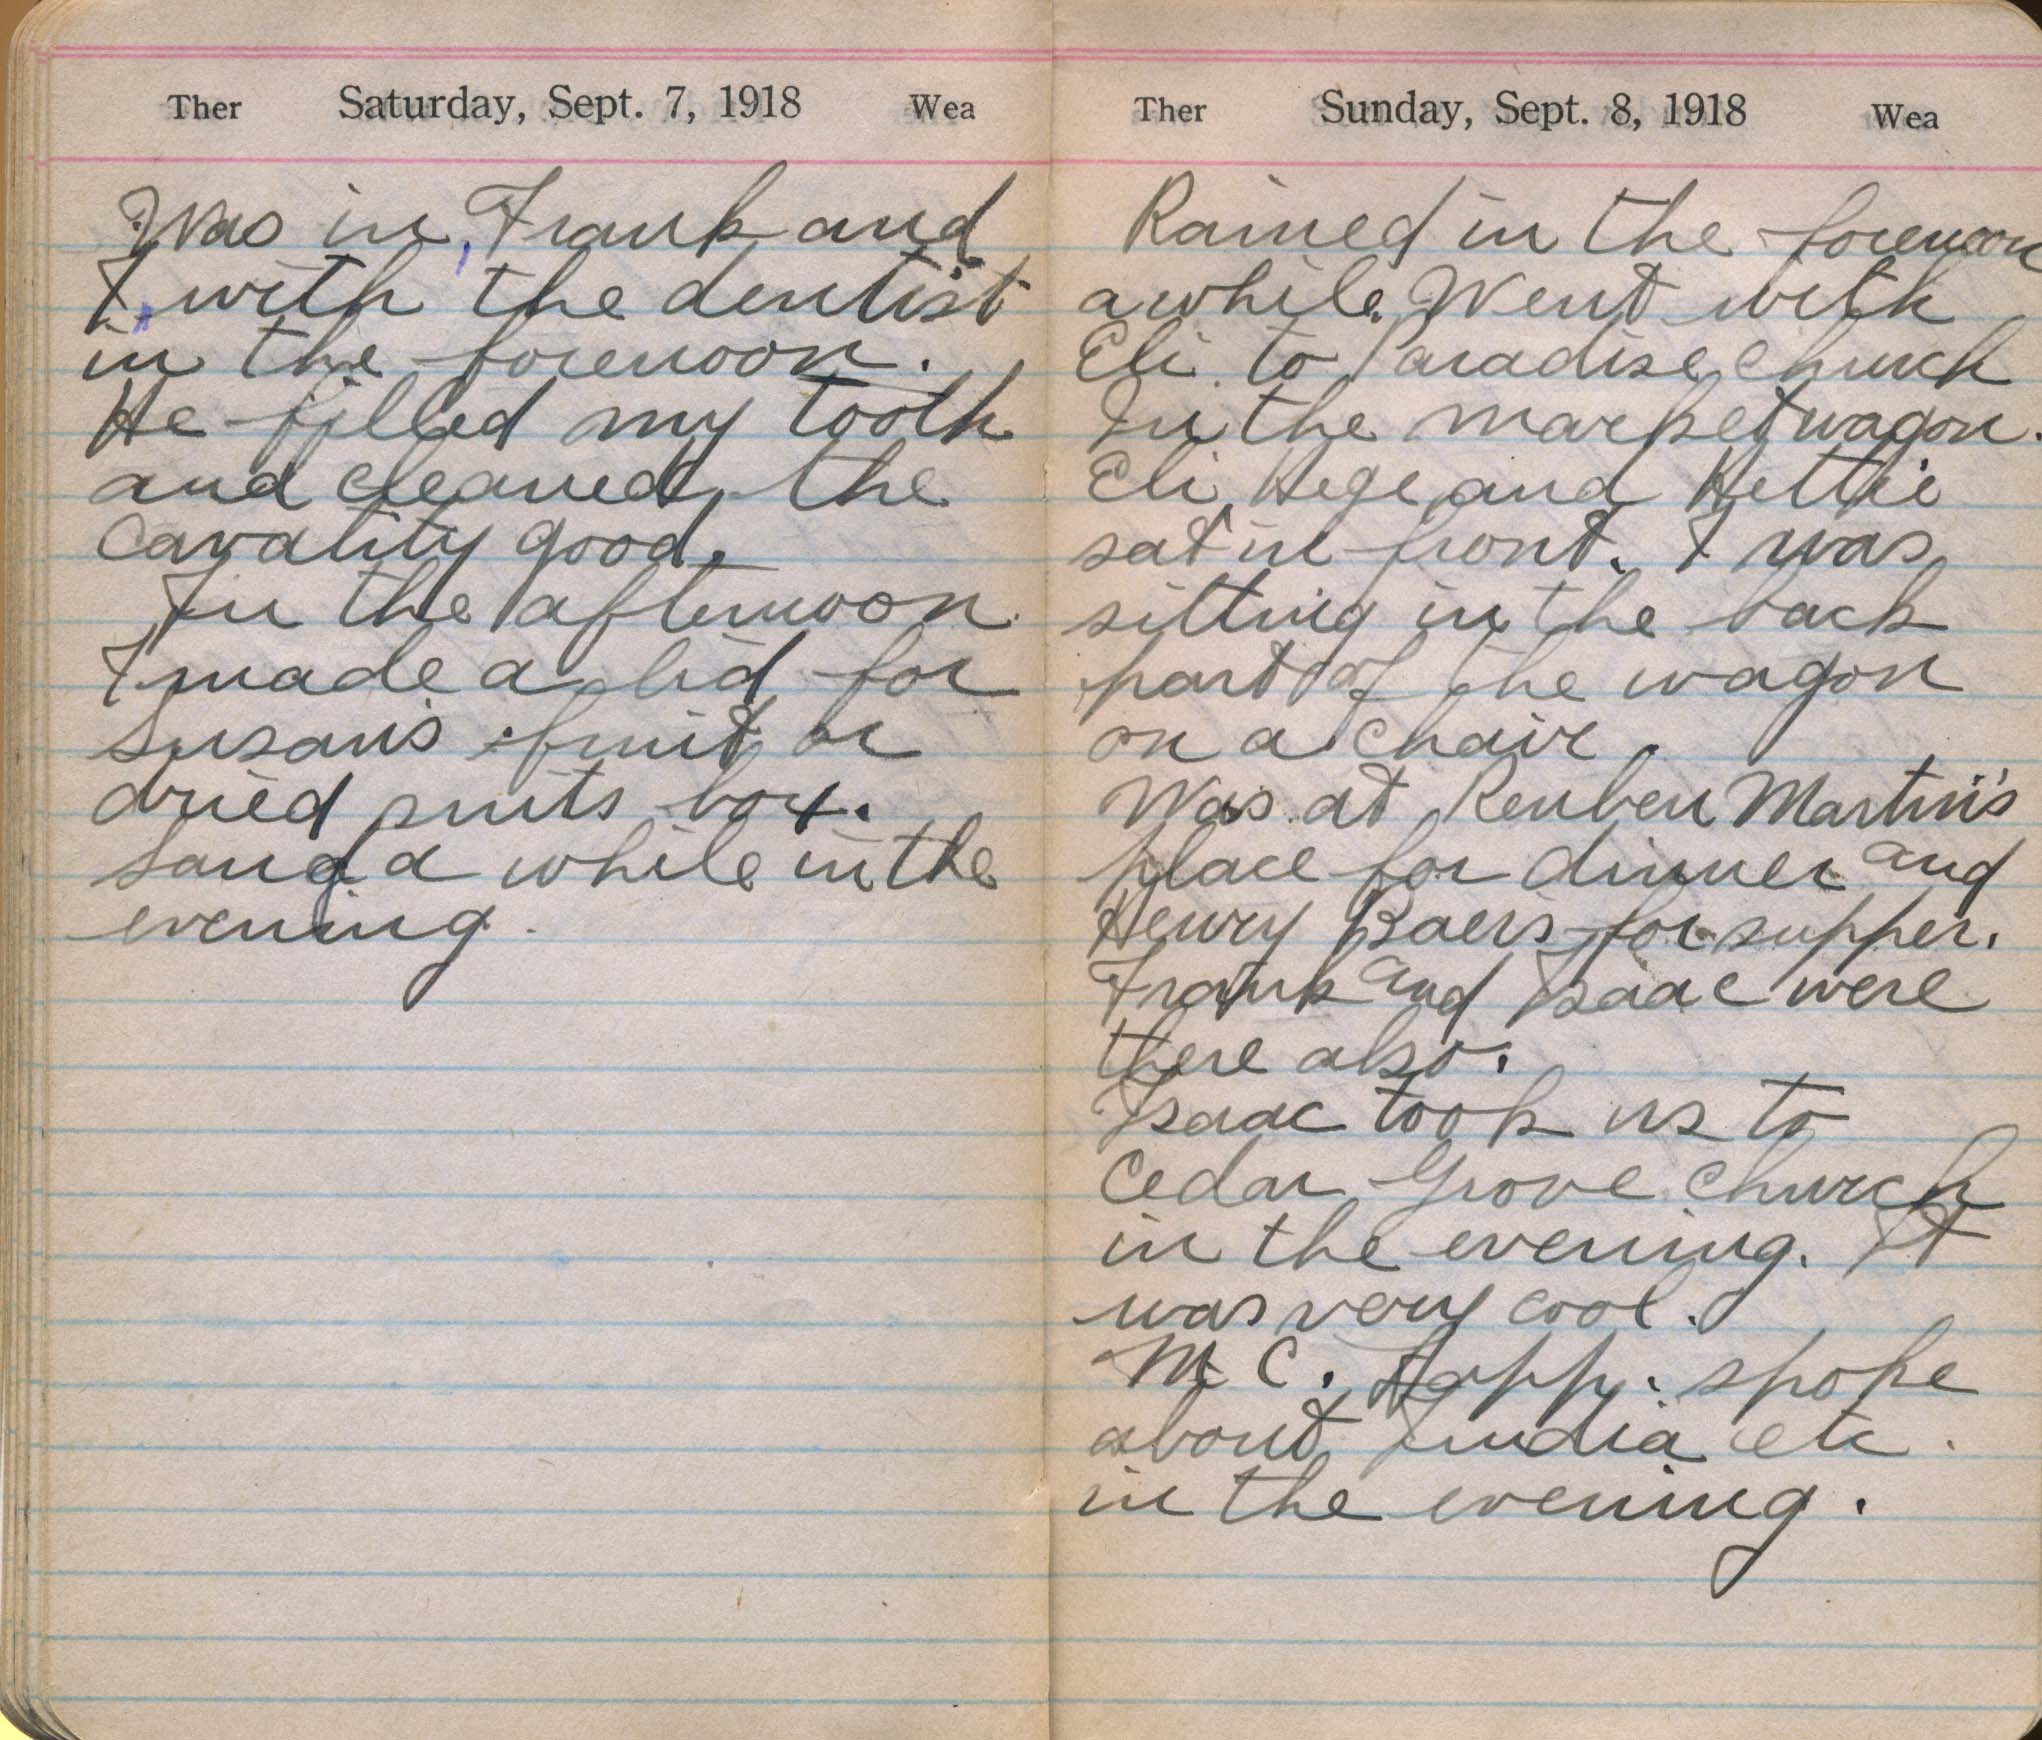 Ther Saturday, Sept. 7, 1918 Wea
Was in, Frank and
I, with the dentist
in the forenoon.
He filled my tooth
and cleaned the
cavality good.
In the afternoon
I made a lid for
Susan's fruit or
dried snits box.
Sang a while in the
evening.
Ther Sunday, Sept. 8, 1918 Wea
Rained in the forenoon
a while. Went with
Eli to Paradise church
In the market wagon.
Eli Hege and Hettie
sat in front. I was
sitting in the back
part of the wagon
on a chair.
Was at Reuben Martin's
place for dinner and
Henry Baers for supper.
Frank and Isaac were
there also.
Isaac took us to
Cedar Grove church
in the evening. It
was very cool.
M C. Lapp. spoke
about India etc.
in the evening.